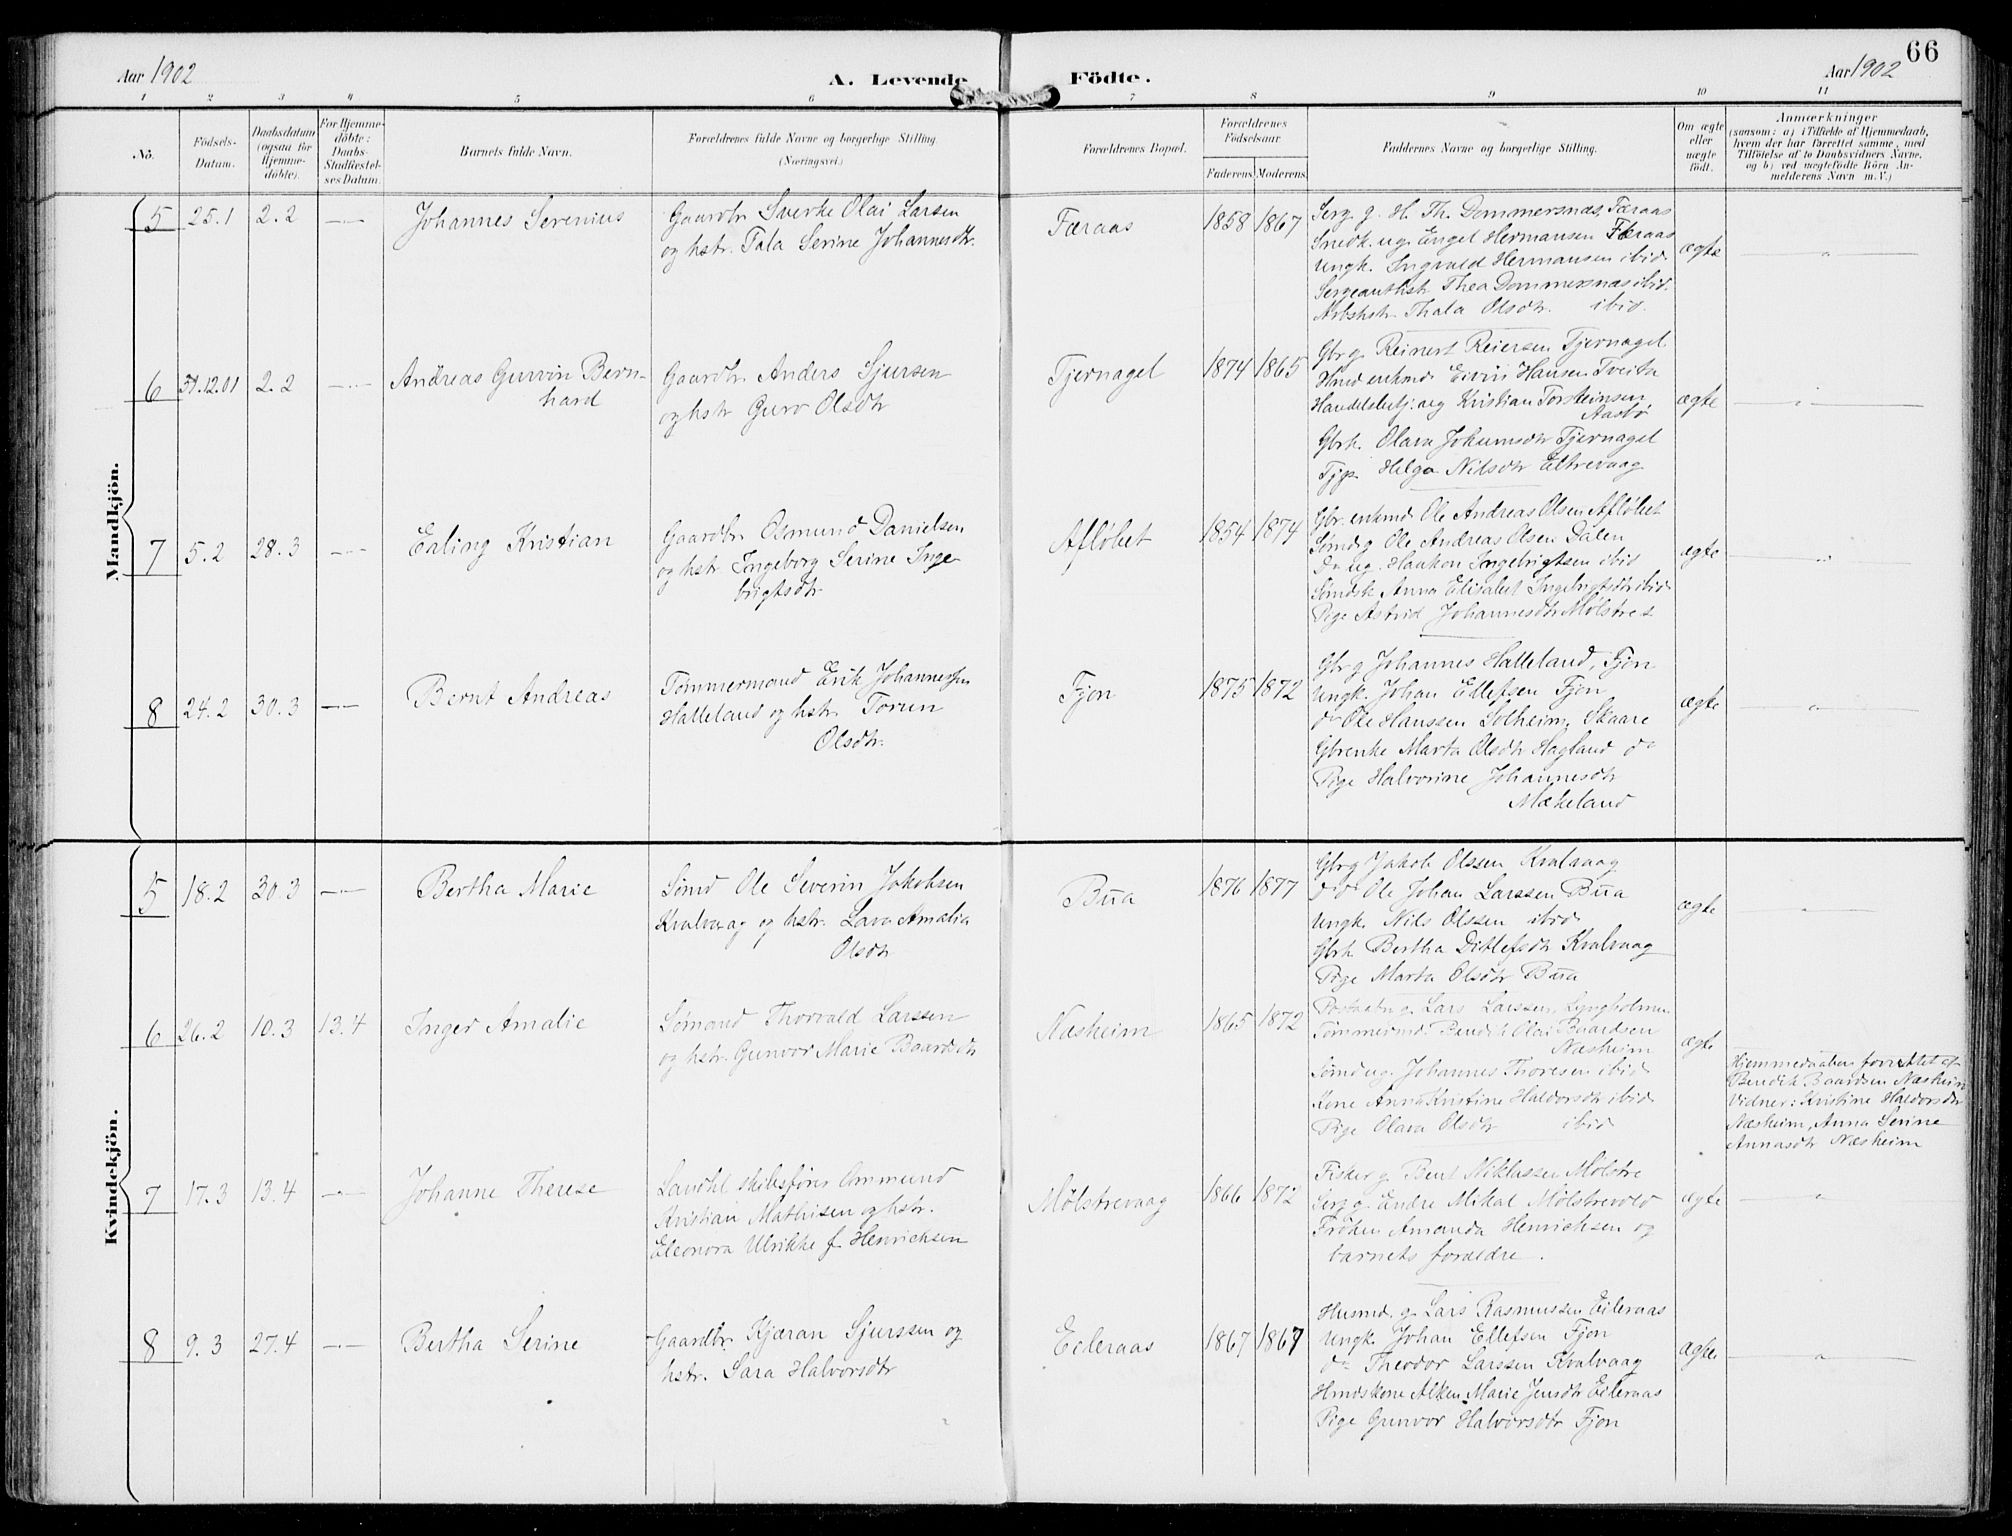 66
Aar 1902
A. Levende Födte.
Aar 1902
1 2 3 4 5 6 7 8 9 10 11
No.
Födsels-Datum.
Daabsdatum (ogsaa for Hjemme-döbte).
For Hjemme-döbte: Daabs-Stadfæstel-ses Datum.
Barnets fulde Navn.
Forældrenes fulde Navne og borgerlige Stilling (Næringsvei.)
Forældrenes Bopæl.
Forældrenes Födselsaar.
Faderens Moderens.
Faddernes Navne og borgerlige Stilling.
Om ægte eller uægte födt.
Anmærkninger
(saasom: a) i Tilfælde af Hjemmedaab,
hvem der har forrettet samme, med
Tilföielse af to Daabsvidners Navne,
og b) ved uægtefödte Börn An-
melderens Navn m. V.)
Mandkjön.
5 25.1 2.2 Johannes Serenius
Gaardbr Sverke Olai Larsen
og hstr. Tala Serine Johannesdtr.
Færaas 1858 1867
Serg. g. H. Th. Dommersnæs, Færaas
Snedk. ug. Engel Hermansen Færaas
Ungk. Ingvald Hermansen ibid.
Sergeanthstr Thea Dommersnæs ibid.
Arbshstr. Thala Olsdtr. ibid.
ægte
6 31.12.01 2.2 Andreas Gurvin Bern-
hard
Gaardbr Anders Sjursen
og hstr Guro Olsdtr
Tjernagel 1874 1865
Gbr g. Reinert Reiersen Tjernagel
Hmd enkmd. Eivin Hansen Tveita
Handelsbetj: ug Kristian Torsteinsen,
Aasbø
Gbrk. Olava Johansdtr Tjernagel
Tjp. Helga Nilsdtr Eltrevaag
ægte
7 5.2 28.3 Ealing Kristian
Gaardbr Osmund Danielsen
og hstr Ingeborg Serine Inge-
brigtsdtr
Afløbet 1854 1874
Gbr. enkmd. Ole Andreas Olsen Afløbet
Sømd g Ole Andreas Olsen Dalen
Do ug. Haakon Ingebrigtsen ibid
Sømdsk Anna Elisabet Ingebrigtsdtr ibid
Pige Astrid Johannesdtr Mølstre
ægte
8 24.2 30.3 Bernt Andreas
Tømmermand Erik Johannessen
Halleland og hstr. Torun
Olsdtr.
Fjon 1875 1872
Gbr g Johannes Halleland, Fjon
Ungk. Johan Ellefsen Fjon
do Ole Hanssen Solheim, Skaare
Gbrenke Marta Olsdtr Hagland do
Pige Halvorine Johannesdtr
Mækeland
ægte
Kvindekjön.
5 18.2 30.3 Bertha Marie
Sømd Ole Severin Jakobsen
Kvalvaag og hstr. Lava Amalia
Olsdtr
Bua 1876 1877
Gbr g Jakob Olssen Kvalvaag
do do Ole Johan Larssen Bua
Ungk. Nils Olssen ibid
Gbrk Bertha Ditlefsdtr Kvalvaag
Pige Marta Olsdtr Bua
ægte
6 26.2 10.3 13.4 Inger Amalie
Sømand Thorvald Larssen
og hstr. Gunvor Marie Baardsdtr
Næsheim 1865 1872
Lars Larssen, Lyngholmen
Tømmermd. Bendik Olai Baardsen
Næsheim
Sømd ug. Johannes Thoresen ibid
Kone Anna Kristine Haldorsdtr ibid
Pige Olava Olsdtr ibid
ægte
Hjemmedaaben forrettet af
Bendik Baardsen Næsheim
Vidner: Kristine Haldorsdtr
Næsheim, Anna Serine
Annasdtr Næsheim
7 17.3 13.4 Johanne Therese
Landhl skibsfører Ommund
Kristian Mathisen og hstr.
Eleonora Ulrikke f. Henrichsen
Mølstrevaag 1866 1872
Fisker g Bent Niklassen Mølstre
Serg g. Endre Mikal Mølstrevold
Frøken Amanda Henrichsen og
barnets foraldre.
ægte
8 9.3 27.4 Bertha Serine
Gaardbr. Kjæran Sjurssen og
hstr. Sara Halvorsdtr
Eileraas 1867 1867
Husmd. g. Lars Rasmussen Eileraas
Ungk. Johan Ellefsen Fjon
do Theodor Larssen Kvalvaag
Hmdskone Alken Marie Jensdtr Eileraas
Pige Gunvor Halvorsdtr Fjon
ægte